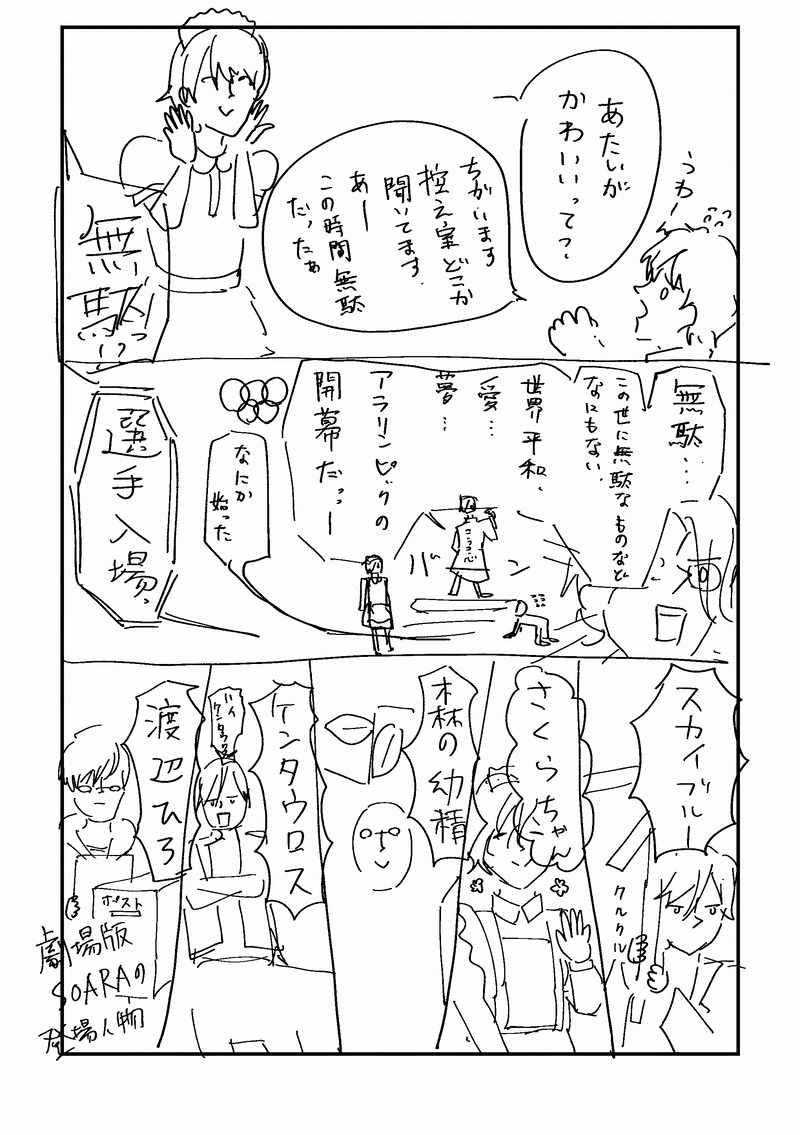 うわー
あたいが
かわいいってっ
ちがいます
控え室どこか
聞いてます
あー
この時間無駄
だったぁ
無駄っ
無駄…
この世に無駄なものなど
なにもない
世界平和、
愛…
夢…
アラリンピックの
開幕だっー
バーン
なにか
始った
選手入場っ
スカイブルー
クルクル
さくらちゃん
木森の幼精
ケンタウロス
ハイ
ケンタウロス
渡辺ひろ
ポスト
劇場版
SOARAの
登場人物